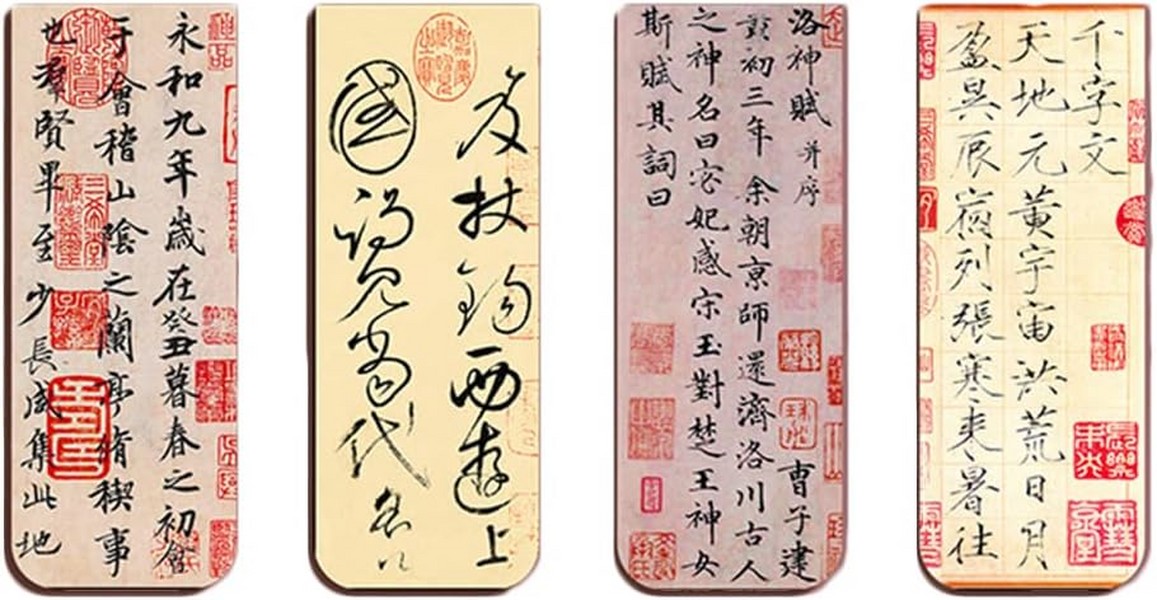 永和九年歲在癸丑暮春之初會
于會稽山陰之蘭亭脩稧事
也羣賢畢至少長咸集此地
笈杖錫西遊上
國謁見當代名
洛神賦 并序 曹子建
黃初三年余朝京師還濟洛川古人
之神名曰宓妃感宋玉對楚王神女
斯賦其詞曰
千字文
天地元黃宇宙洪荒日月
盈昃辰宿列張寒来暑往